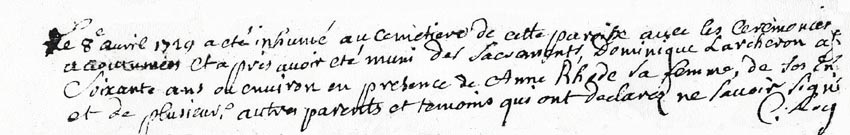 Le 8e avril 1729 a eté inhumé au cemetiere de cette paroisse avec les ceremonies
accoutumées et apres avoir eté muni des sacraments, Dominique Larcheron a
Soixante ans ou environ en presence de Anne Rhode sa femme, de ses en
et de plusieurs autres parents et temoins qui ont declarez ne savoir signé